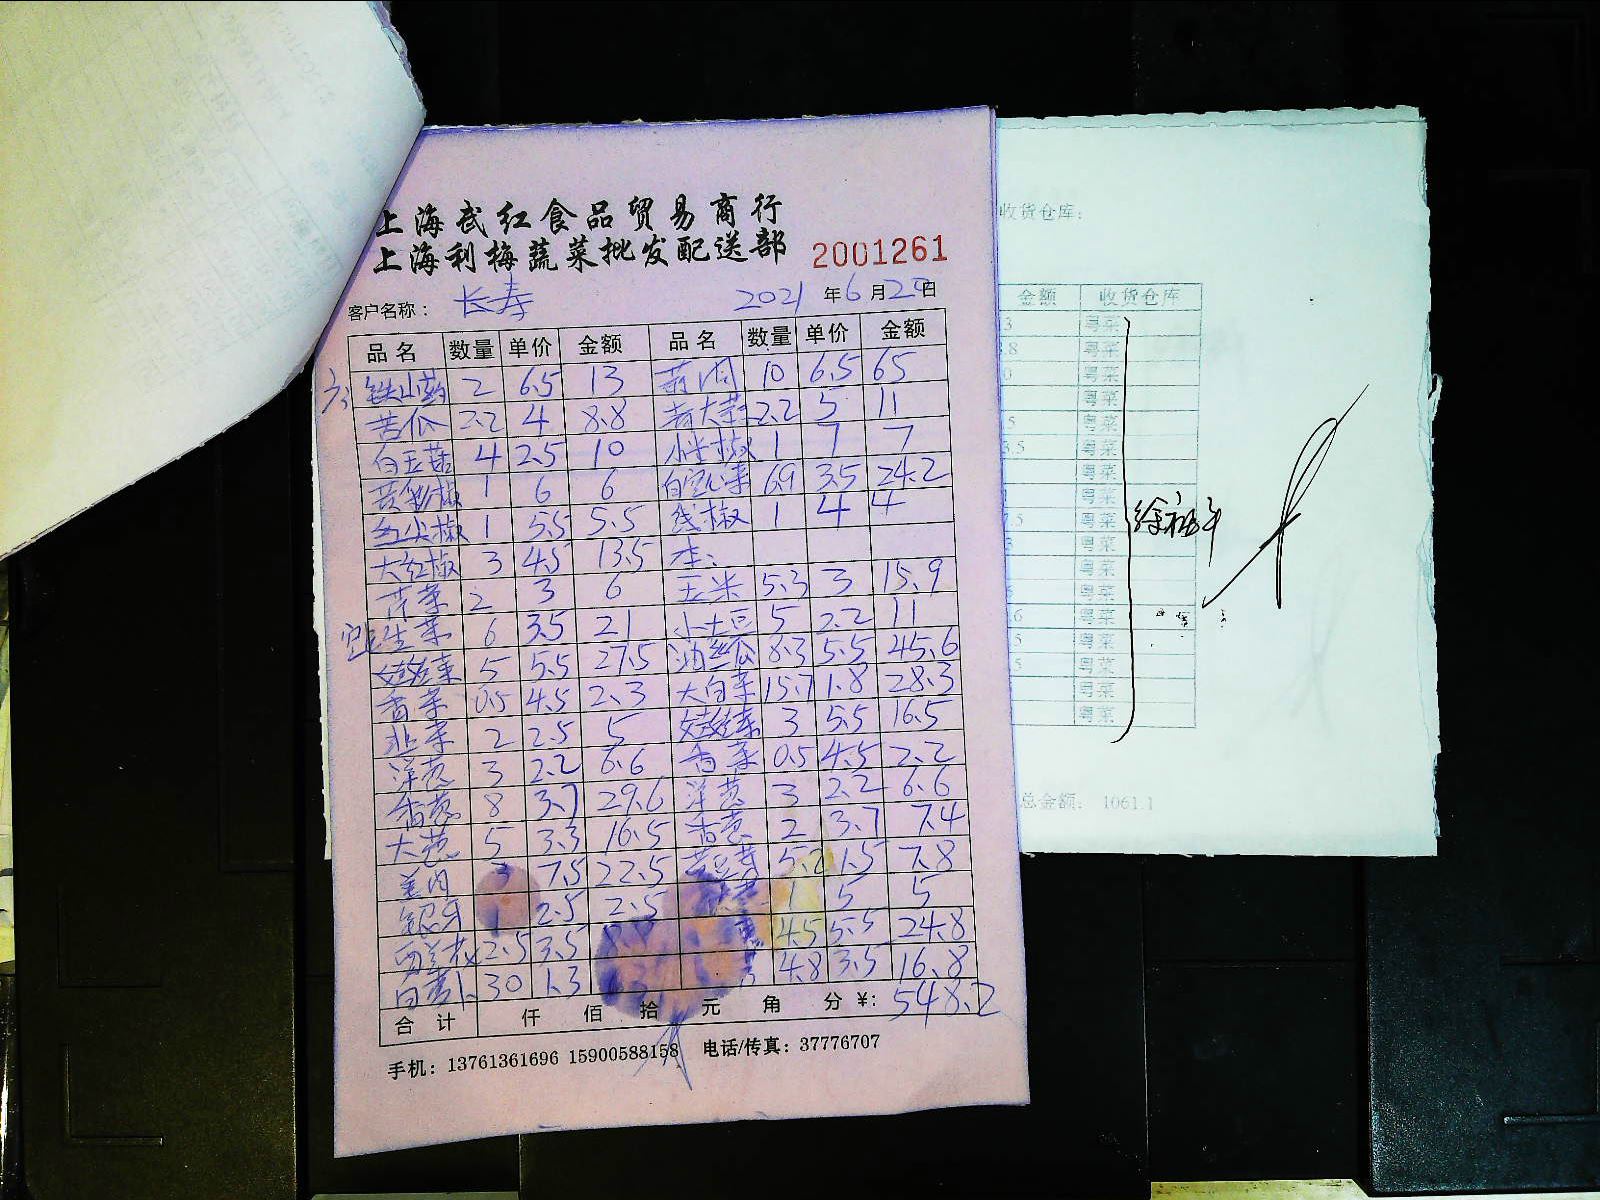 上海武红食品贸易商行
上海利梅蔬菜批发配送部 2001261
客户名称： 长寿 2021 年 6 月 20 日
品名 数量 单价 金额 品名 数量 单价 金额
铁山药 2 6.5 13 10 6.5 65
苦瓜 2.2 4 8.8 2.2 5 11
白玉菇 4 2.5 10 小米椒 1 7 7
黄彩椒 1 6 6 白空心菜 6.9 3.5 24.2
红尖椒 1 5.5 5.5 线椒 1 4 4
大红椒 3 4.5 13.5 本：
芹菜 2 3 6 玉米 5.3 3 15.9
生菜 6 3.5 21 小土豆 5 2.2 11
娃娃菜 5 5.5 27.5 油丝瓜 8.3 5.5 45.6
香菜 0.5 4.5 2.3 大白菜 15.7 1.8 28.3
韭菜 2 2.5 5 娃娃菜 3 5.5 16.5
洋葱 3 2.2 6.6 香菜 0.5 4.5 2.2
香葱 8 3.7 29.6 洋葱 3 2.2 6.6
大葱 5 3.3 16.5 香葱 2 3.7 7.4
姜肉 3 7.5 22.5 黄豆芽 5.2 1.5 7.8
银牙 2.5 2.5 1 5 5
西兰花 2.5 3.5 4.5 5.5 24.8
白萝卜 30 1.3 4.8 3.5 16.8
合计 仟 佰 拾 元 角 分 ¥： 548.2
手机：13761361696 15900588158 电话/传真：37776707
收货仓库：
金额 收货仓库
3 粤菜
.8 粤菜
0 粤菜
粤菜
5 粤菜
3.5 粤菜
粤菜
粤菜
.5 粤菜
3 粤菜
粤菜
粤菜
.6 粤菜
5 粤菜
5 粤菜
粤菜
粤菜
总金额： 1061.1